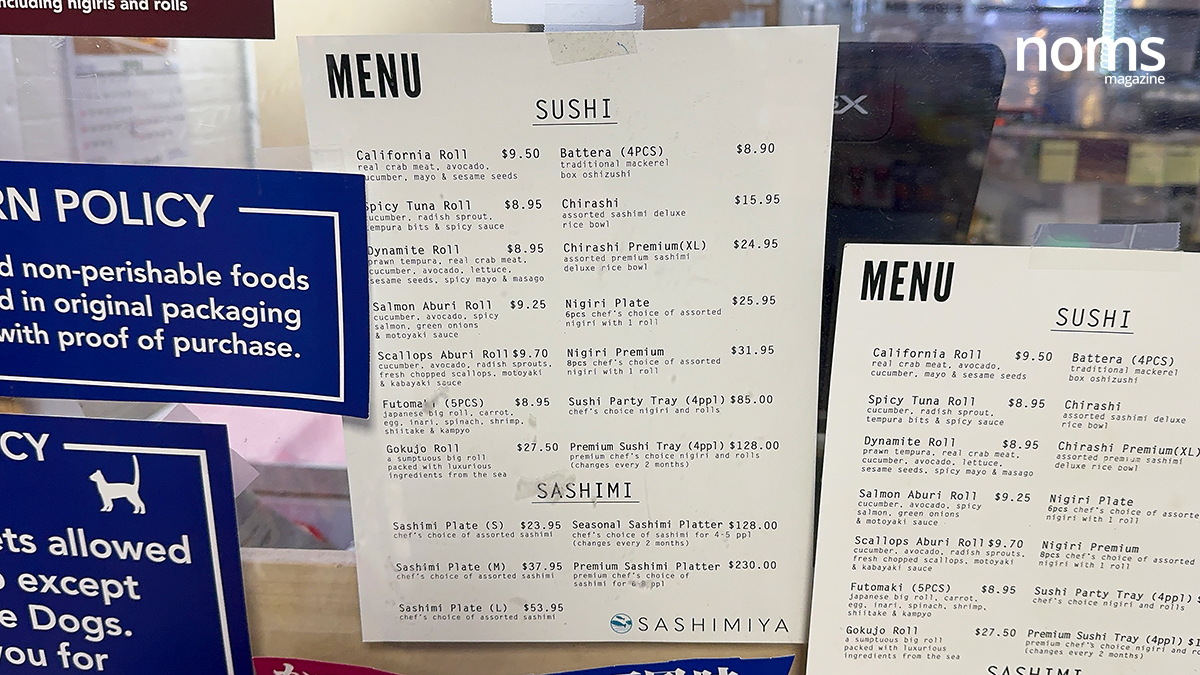 including nigiris and rolls
noms
magazine
RN POLICY
d non-perishable foods
d in original packaging
with proof of purchase.
CY
ets allowed
except
e Dogs.
you for
MENU
SUSHI
California Roll $9.50
real crab meat, avocado,
cucumber, mayo & sesame seeds
Spicy Tuna Roll $8.95
cucumber, radish sprout,
tempura bits & spicy sauce
Dynamite Roll $8.95
prawn tempura, real crab meat,
cucumber, avocado, lettuce,
sesame seeds, spicy mayo & masago
Salmon Aburi Roll $9.25
cucumber, avocado, spicy
salmon, green onions
& motoyaki sauce
Scallops Aburi Roll $9.70
cucumber, avocado, radish sprouts,
fresh chopped scallops, motoyaki
& kabayaki sauce
Futomaki (5PCS) $8.95
japanese big roll, carrot,
egg, inari, spinach, shrimp,
shiitake & kampyo
Gokujo Roll $27.50
a sumptuous big roll
packed with luxurious
ingredients from the sea
Battera (4PCS) $8.90
traditional mackerel
box oshizushi
Chirashi $15.95
assorted sashimi deluxe
rice bowl
Chirashi Premium(XL) $24.95
assorted premium sashimi
deluxe rice bowl
Nigiri Plate $25.95
6pcs chef's choice of assorted
nigiri with 1 roll
Nigiri Premium $31.95
8pcs chef's choice of assorted
nigiri with 1 roll
Sushi Party Tray (4ppl) $85.00
chef's choice nigiri and rolls
Premium Sushi Tray (4ppl) $128.00
premium chef's choice nigiri and rolls
(changes every 2 months)
SASHIMI
Sashimi Plate (S) $23.95
chef's choice of assorted sashimi
Sashimi Plate (M) $37.95
chef's choice of assorted sashimi
Sashimi Plate (L) $53.95
chef's choice of assorted sashimi
Seasonal Sashimi Platter $128.00
chef's choice of sashimi for 4-5 ppl
(changes every 2 months)
Premium Sashimi Platter $230.00
premium chef's choice of
sashimi for 6-8 ppl
SASHIMIYA
MENU
SUSHI
California Roll $9.50
real crab meat, avocado,
cucumber, mayo & sesame seeds
Spicy Tuna Roll $8.95
cucumber, radish sprout,
tempura bits & spicy sauce
Dynamite Roll $8.95
prawn tempura, real crab meat,
cucumber, avocado, lettuce,
sesame seeds, spicy mayo & masago
Salmon Aburi Roll $9.25
cucumber, avocado, spicy
salmon, green onions
& motoyaki sauce
Scallops Aburi Roll $9.70
cucumber, avocado, radish sprouts,
fresh chopped scallops, motoyaki
& kabayaki sauce
Futomaki (5PCS) $8.95
japanese big roll, carrot,
egg, inari, spinach, shrimp,
shiitake & kampyo
Gokujo Roll $27.50
a sumptuous big roll
packed with luxurious
ingredients from the sea
Battera (4PCS)
traditional mackerel
box oshizushi
Chirashi
assorted sashimi deluxe
rice bowl
Chirashi Premium(XL)
assorted premium sashimi
deluxe rice bowl
Nigiri Plate
6pcs chef's choice of assorte
nigiri with 1 roll
Nigiri Premium
8pcs chef's choice of assorte
nigiri with 1 roll
Sushi Party Tray (4ppl) $
chef's choice nigiri and rolls
Premium Sushi Tray (4ppl) $1
premium chef's choice nigiri and ro
(changes every 2 months)
SASHIMI